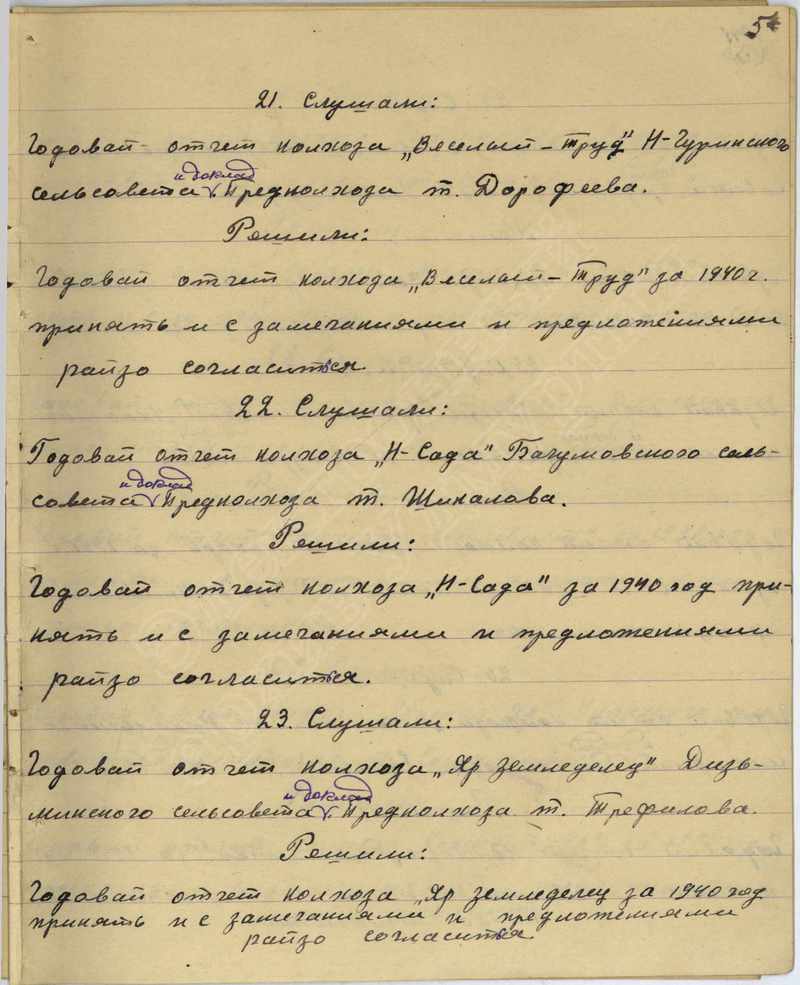 5
21. Слушали:
Годовай отчет колхоза „Веселый – Труд" Н-Чуринского
и доклад
сельсовета Предколхоза т. Дорофеева.
Решили:
Годовай отчет колхоза „Веселый – Труд" за 1940 г.
принять и с замечаниями и предложениями
райзо согласиться
22. Слушали:
Годовай отчет колхоза „Н-Сада" Бачумовского сель-
и доклад
совета Предколхоза т. Шикалова.
Решили:
Годовай отчет колхоза „Н-Сада" за 1940 год при-
нять и с замечаниями и предложениями
райзо согласиться.
23. Слушали:
Годовай отчет колхоза „Яр земледелец" Дизь-
и доклад
минского сельсовета Предколхоза т. Трефилова.
Решили:
Годовай отчет колхоза „Яр земледелец за 1940 год
принять и с замечаниями и предложениями
райзо согласиться.